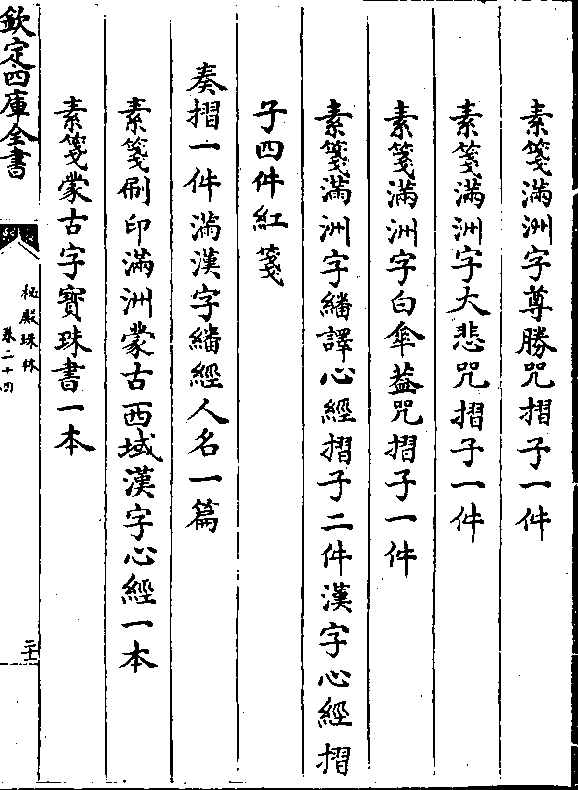 素箋滿洲字尊勝咒摺子一件
素箋滿洲字大悲咒摺子一件
素箋滿洲字白傘葢咒摺子一件
素箋滿洲字繙譯心經摺子二件漢字心經摺
子四件紅箋
奏摺一件滿漢字繙經人名一篇
素箋刷印滿洲蒙古西域漢字心經一本
素箋蒙古字寳珠書一本
欽定四庫全書
秘殿珠林
卷二十四
二十一